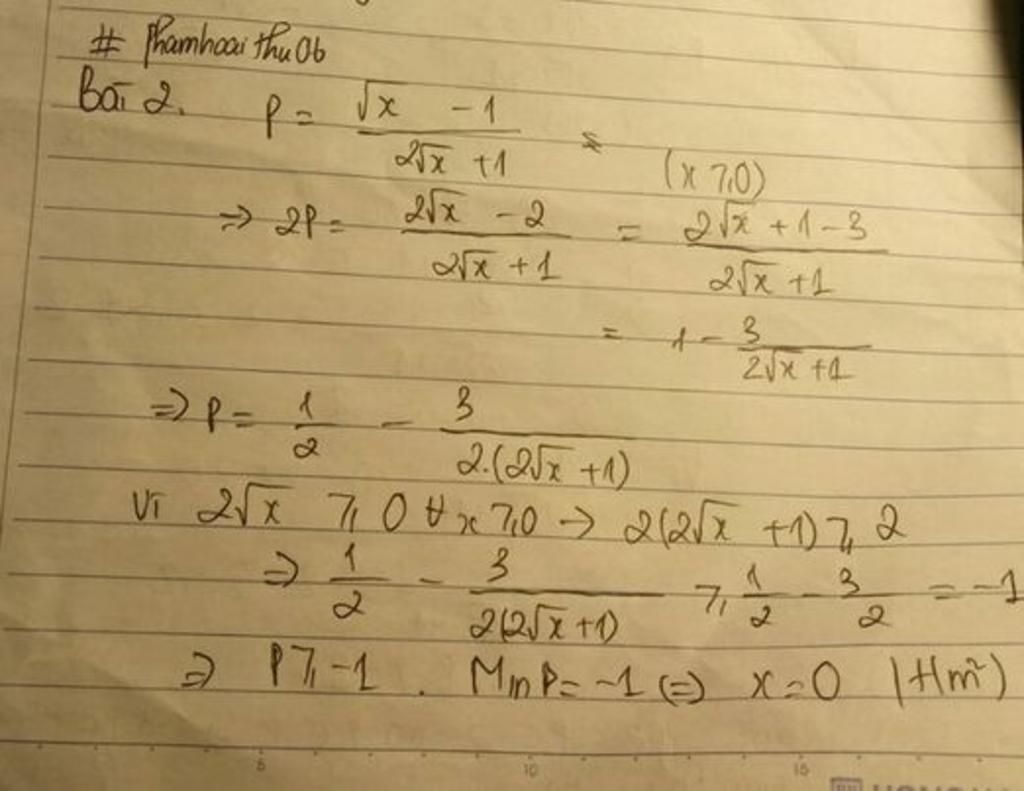 # Phamhoaithu06
Bài 2. P = (√x - 1)/(2√x + 1) (x ⩾ 0)
=> 2P = (2√x - 2)/(2√x + 1) = (2√x + 1 - 3)/(2√x + 1)
= 1 - 3/(2√x + 1)
=> P = 1/2 - 3/(2.(2√x + 1))
Vì 2√x ⩾ 0 ∀ x ⩾ 0 → 2(2√x + 1) ⩾ 2
=> 1/2 - 3/(2(2√x + 1)) ⩾ 1/2 - 3/2 = -1
=> P ⩾ -1. Min P = -1 (=) x = 0 (t/m²)
5 10 15